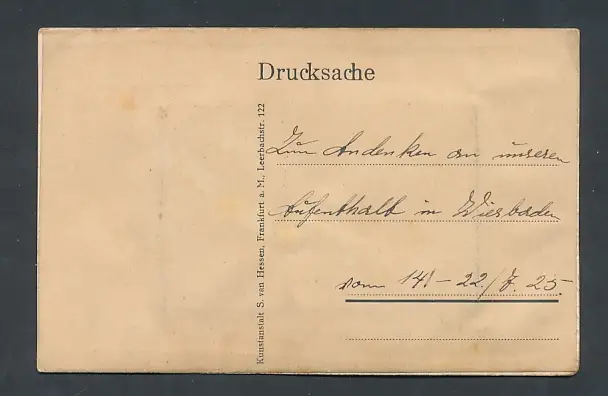 Drucksache
Kunstanstalt S. van Hessen, Frankfurt a. M., Leerbachstr. 122
Zum Andenken an unseren
Aufenthalt in Wiesbaden
vom 14. - 22./7. 25.